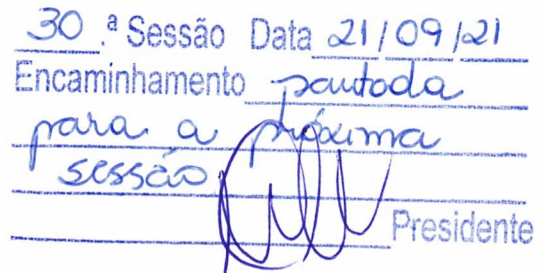 30.ª Sessão Data 21/09/21
Encaminhamento pautada
para a próxima
sessão
Presidente